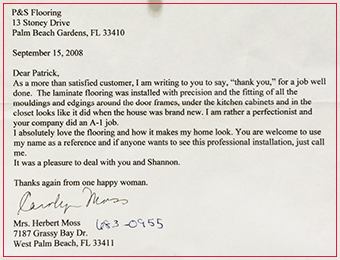 P&S Flooring
13 Stoney Drive
Palm Beach Gardens, FL 33410
September 15, 2008
Dear Patrick,
As a more than satisfied customer, I am writing to you to say, “thank you,” for a job well
done. The laminate flooring was installed with precision and the fitting of all the
mouldings and edgings around the door frames, under the kitchen cabinets and in the
closet looks like it did when the house was brand new. I am rather a perfectionist and
your company did an A-1 job.
I absolutely love the flooring and how it makes my home look. You are welcome to use
my name as a reference and if anyone wants to see this professional installation, just call
me.
It was a pleasure to deal with you and Shannon.
Thanks again from one happy woman.
Carolyn Moss
Mrs. Herbert Moss 683-0955
7187 Grassy Bay Dr.
West Palm Beach, FL 33411